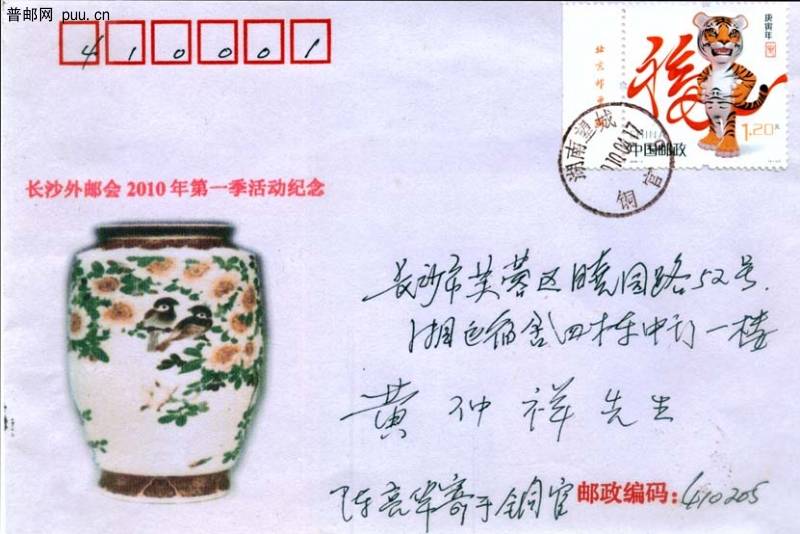 普邮网 puu.cn
410001
庚寅年
福
1.20元
中国邮政
CHINA
湖南望城
2010.04.17
铜官
长沙外邮会2010年第一季活动纪念
长沙市芙蓉区晓园路52号
湘运宿舍四栋中门一楼
黄仲祥先生
陈亮华寄于铜官 邮政编码：410205